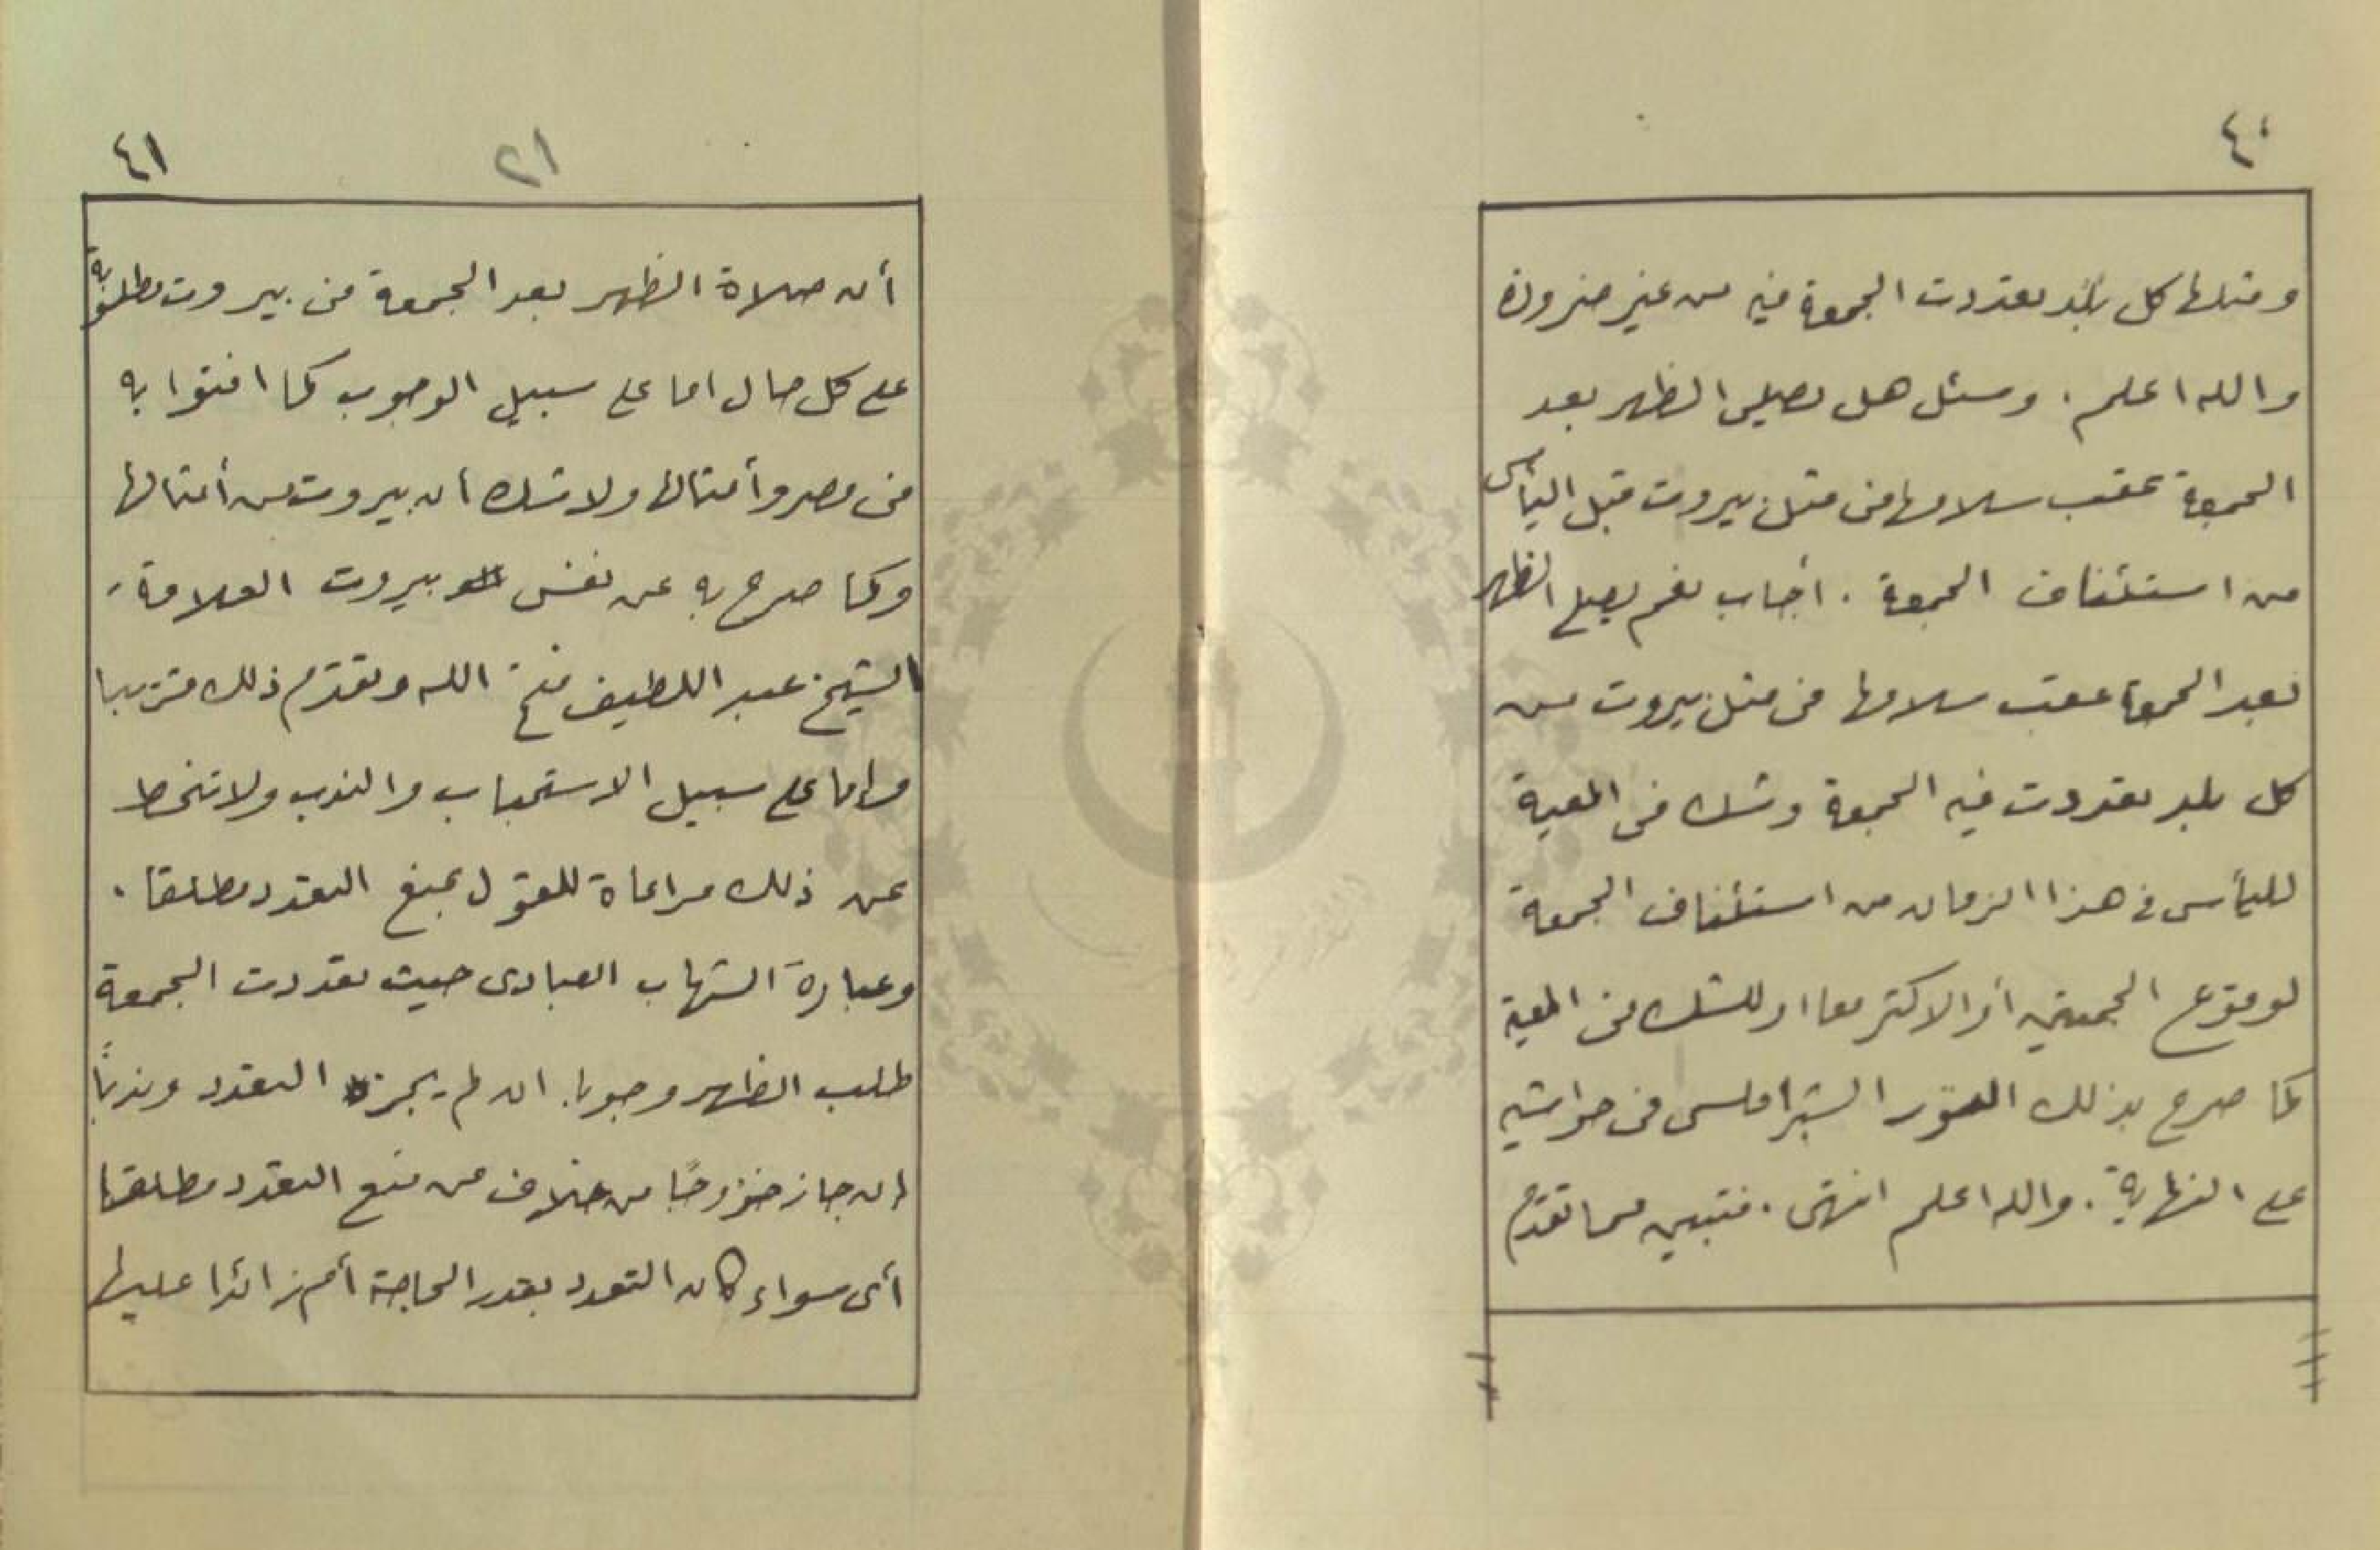 ٤٠
ومثلها كل بلد تعددت الجمعة فيه من غير ضرورة
والله اعلم . وسئل هل يصلي الظهر بعد
الجمعة عقب سلامها في مثل بيروت قبل اليأس
من استئناف الجمعة . أجاب نعم يصلي الظهر
بعد الجمعة عقب سلامها في مثل بيروت من
كل بلد تعددت فيه الجمعة وشك في المعية
لليأس في هذا الزمان من استئناف الجمعة
لوقوع الجمعتين أو الاكثر معا او للشك في المعية
كما صرح بذلك النور الشبراملسي في حواشيه
على النهاية . والله اعلم انتهى . فتبين مما تقدم
٤١
٢١
أن صلاة الظهر بعد الجمعة في بيروت مطلوبة
على كل حال اما على سبيل الوجوب كما افتوا به
في مصر وأمثالها ولا شك ان بيروت من أمثالها
وكما صرح به عن نفس بيروت العلامة
الشيخ عبد اللطيف فتح الله وتقدم ذلك قريبا
واما على سبيل الاستحباب والندب ولا تنحط
عن ذلك مراعاة للقول بمنع التعدد مطلقا .
وعبارة الشهاب العبادى حيث تعددت الجمعة
طلب الظهر وجوبا ان لم يجز التعدد وندبًا
ان جاز خروجًا من خلاف من منع التعدد مطلقا
أي سواء كان التعدد بقدر الحاجة أم زائدا عليها